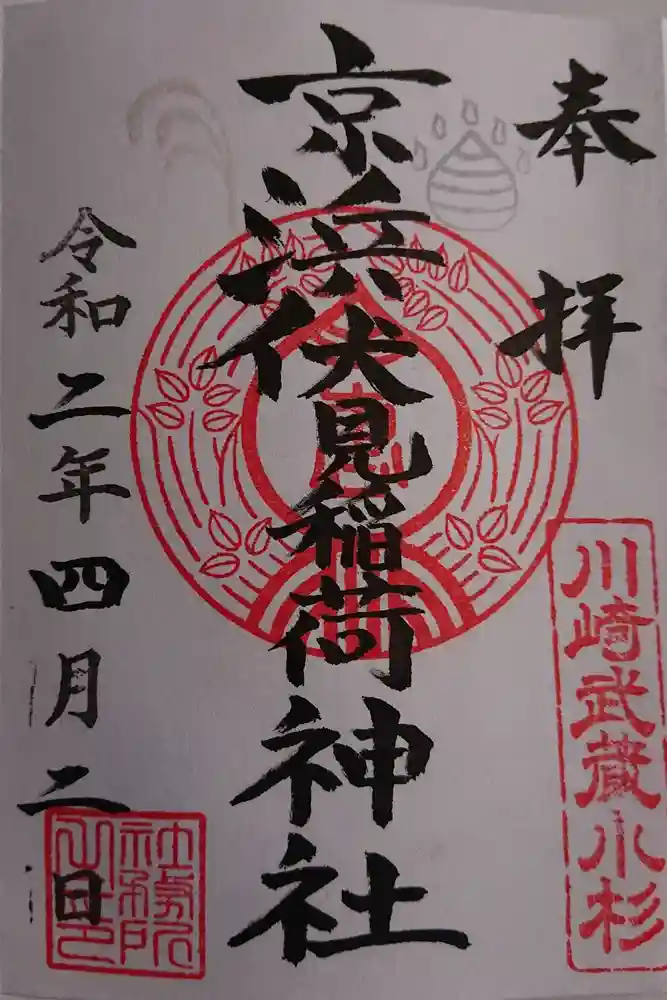 奉拝
京浜伏見稲荷神社
川崎武蔵小杉
令和二年四月二日
社務所之印